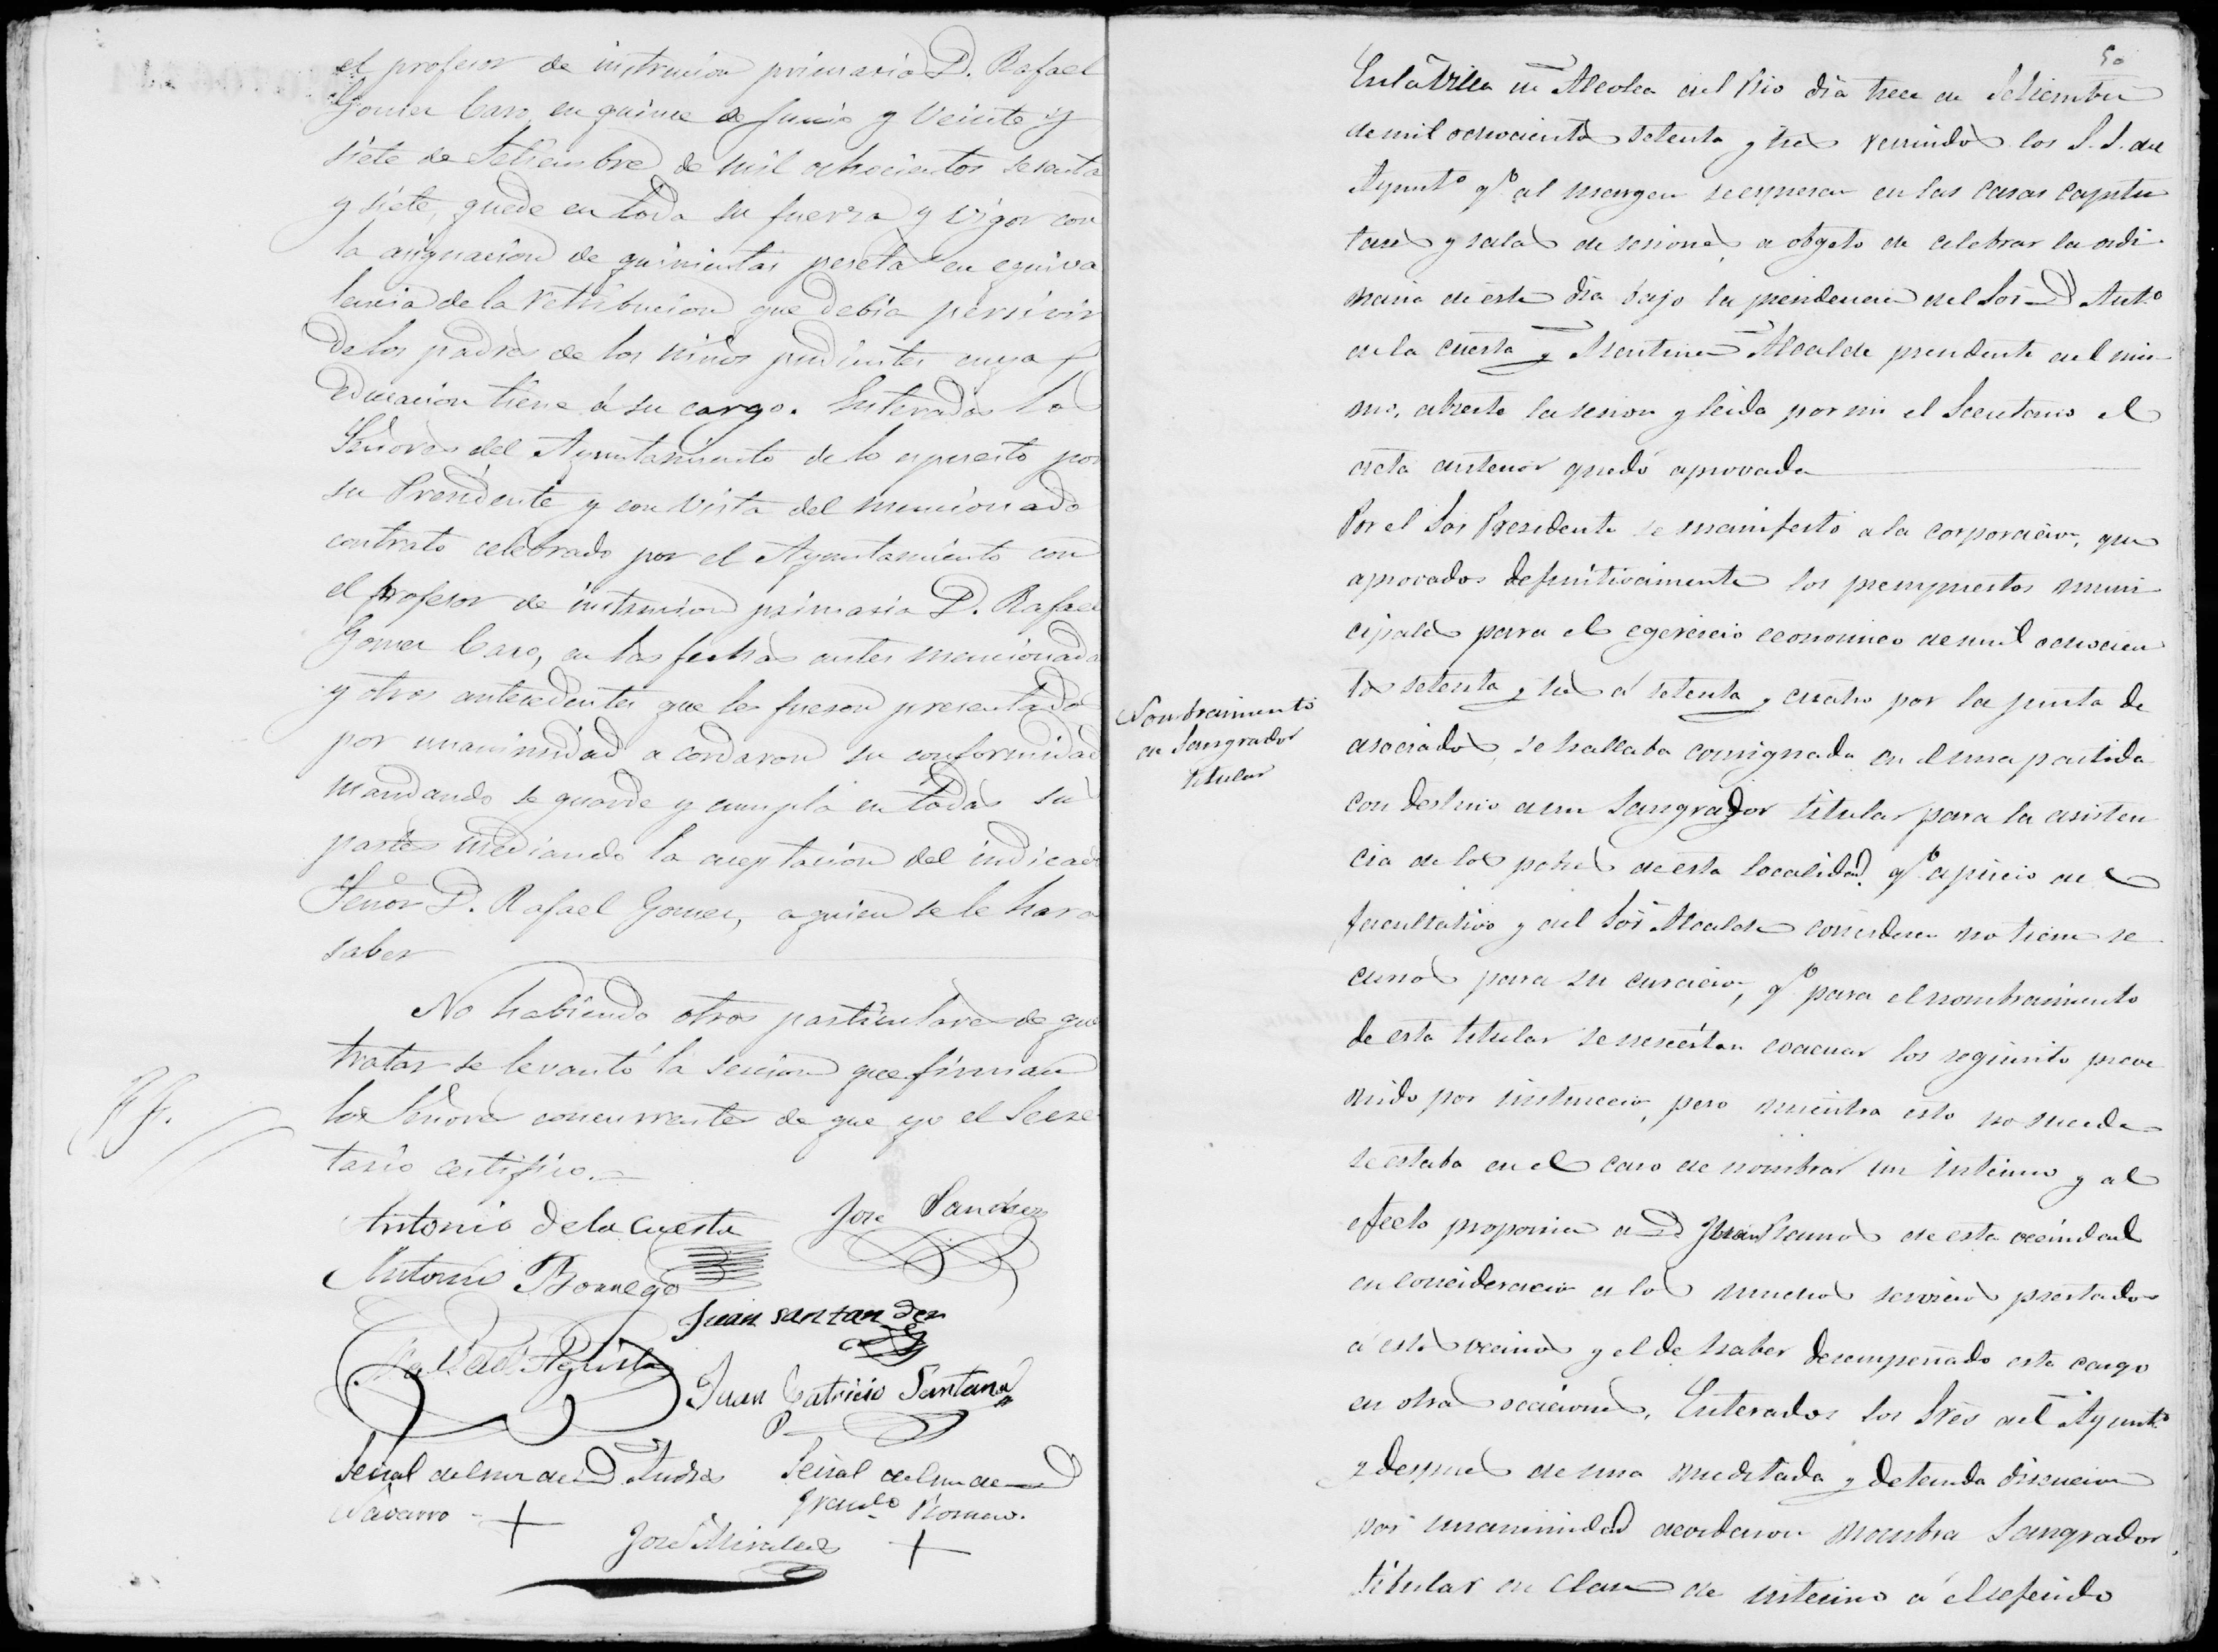 el profesor de instrucion primaria D. Rafael
Gomez Caro, en quince de Junio y Veinte y
siete de Setiembre de mil ochocientos sesenta
y siete, quede en toda su fuerza y vigor con
la asignacion de quinientas pesetas en equiva
lencia de la retribucion que debia persivir
de los padres de los niños pudientes cuya
educacion tiene á su cargo. Enterados los
Señores del Ayuntamiento de lo espuesto por
su Presidente y con vista del mencionado
contrato celebrado por el Ayuntamiento con
el profesor de instrucion primaria D. Rafael
Gomez Caro, en las fechas antes mencionadas
y otros antecedentes que les fueron presentados
por unanimidad acordaron su conformidad
mandando se guarde y cumpla en todas sus
partes mediando la aceptacion del indicado
Señor D. Rafael Gomez, a quien se le hara
saber
No habiendo otros particulares de que
tratar se levantó la secion que firman
los Señores concurrentes de que yo el Secre
tario certifico.=
Antonio de la Cuesta
Jose Sanchez
Antonio Borrego
Juan santander
Juan Patricio Santana
Señal de Cruz de D Andres
Navarro - +
Señal de Cruz de D
Franco Romero.
+
José Mirales
50
En la Villa de Alcolea del Rio dia trece de Setiembre
de mil ochocientos setenta y tres reunidos los S. S. del
Ayunto qe al margen se espresan en las casas capitu
lares y salas de sesiones, a objeto de celebrar la ordi
naria de este dia bajo la presidencia del Sor D Anto
de la Cuesta y Alcalde presidente del mis
mo, abierta la sesion y leida por mi el Secretario el
acta anterior quedó aprovada
Por el Sor Presidente se manifestó a la corporacion, que
aprovados definitivamente los presupuestos muni
cipales para el egercicio economico de mil ochocien
tos setenta y tres á setenta y cuatro por la junta de
asociados, se hallaba consignada en el una partida
con destino a un Sangrador titular para la asisten
cia de los pobres de esta localidad, qe a juicio de
facultativo y del Sor Alcalde consideren no tiene re
cursos para su curacion, qe para el nombramiento
de esta titular se nesecitan evacuar los requisito preve
nido por instruccion, pero mientra esto no suceda
se estaba en el caso de nombrar un interino y al
efecto proponia a D Juan Ramos de esta vecindad
en concideracion a los muchos servicios prestados
á estos vecinos y el de haber desempeñado este cargo
en otras ocaciones. Enterados los Sres del Ayunto
y despues de una meditada y detenida discucion
por unanimidad acordaron nombra Sangrador
titular en clase de interino á el referido
Nombramiento
de Sangrador
titular